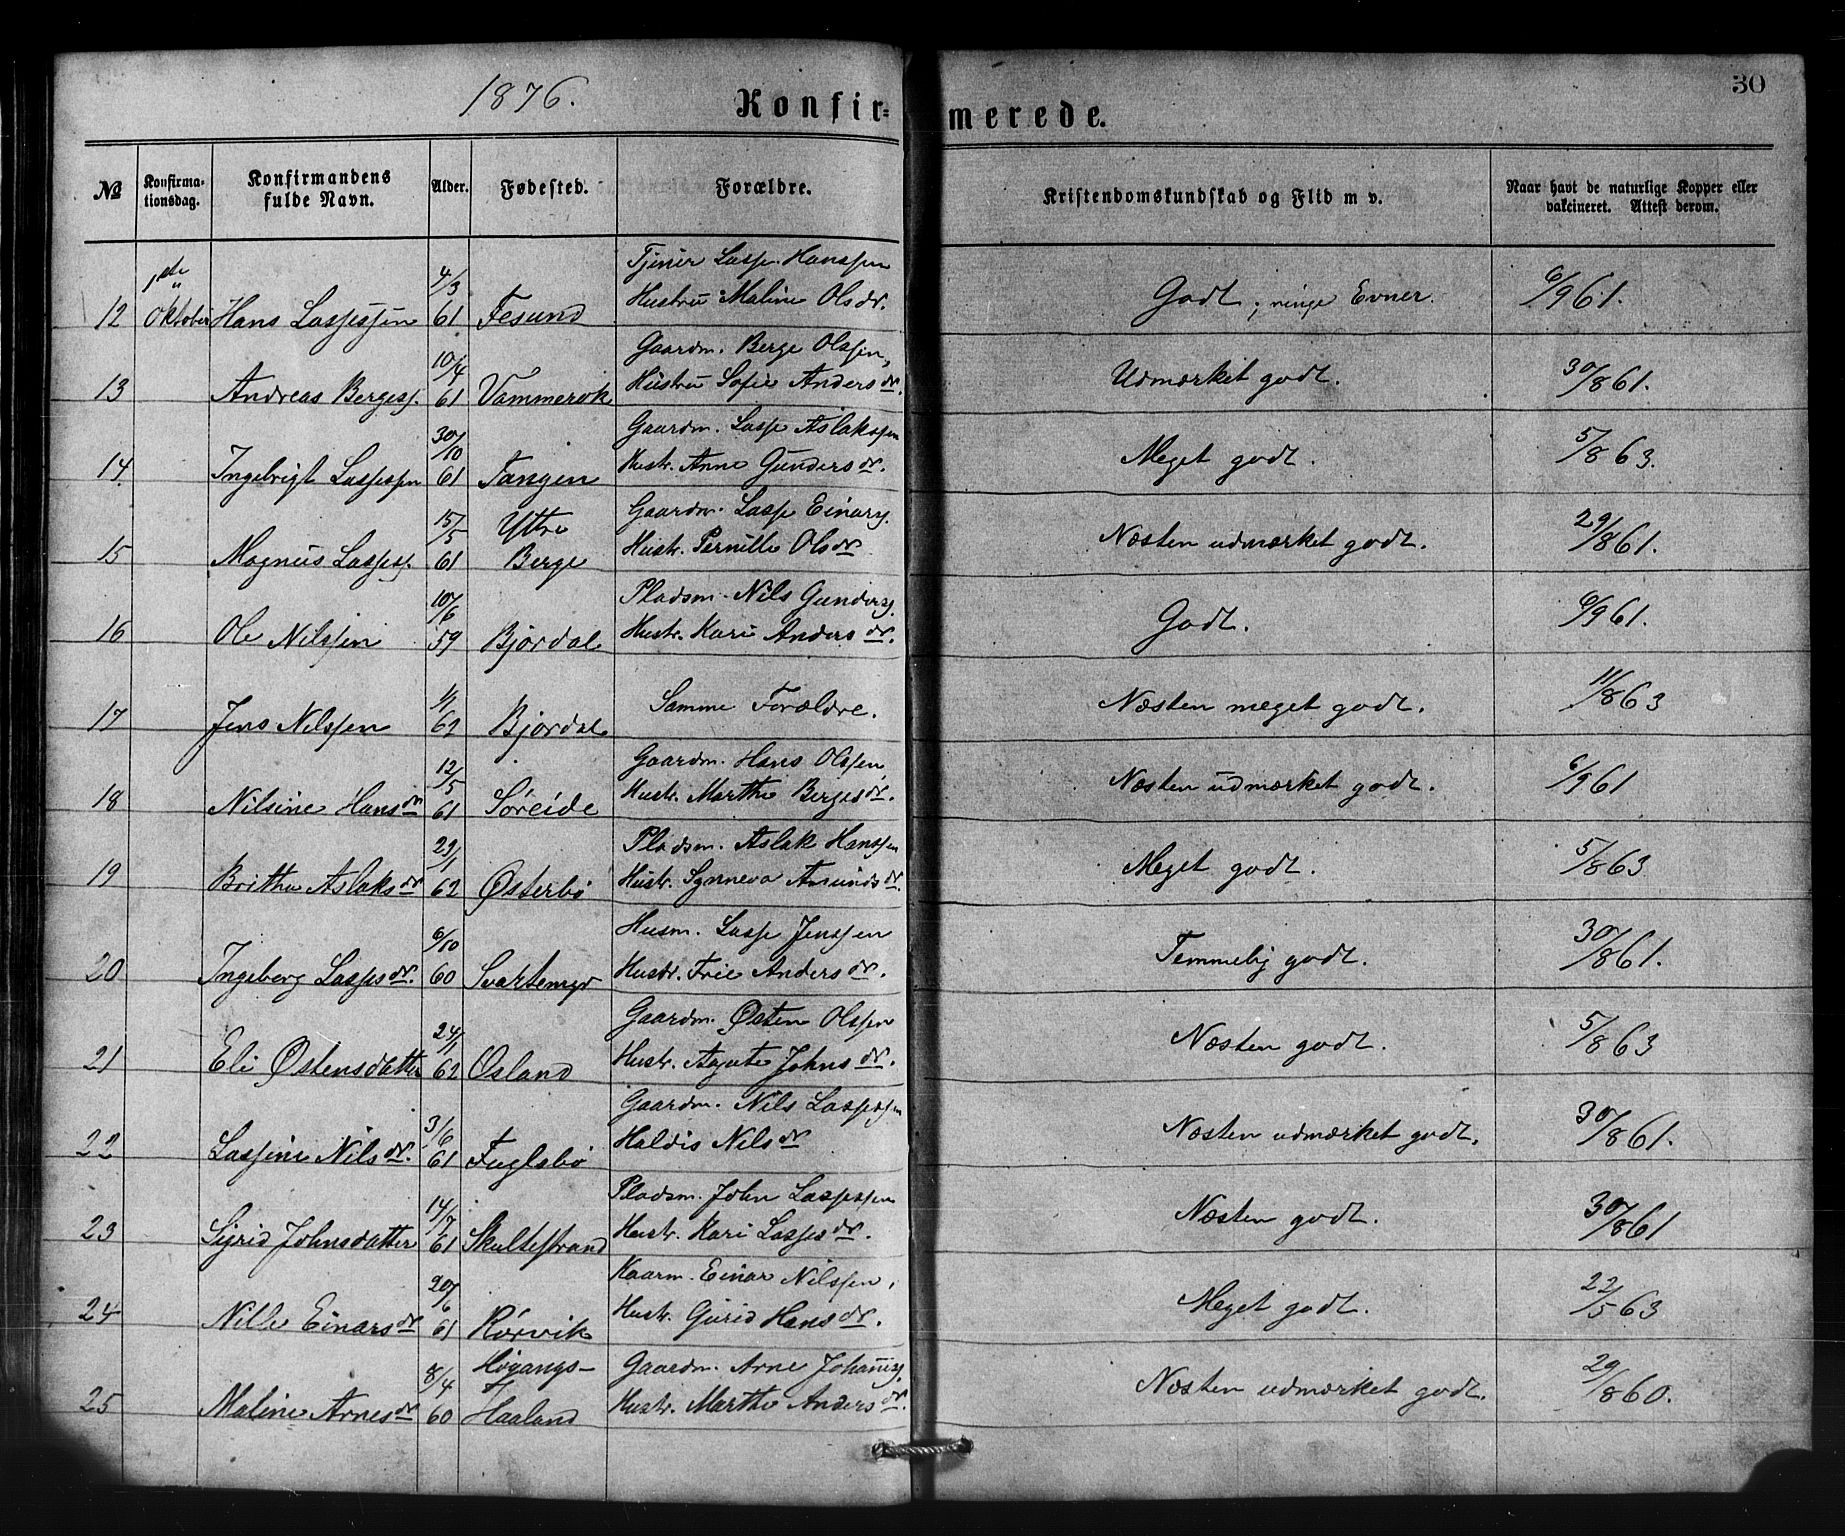 1876.
30
Konfir= merede.
№ Konfirma-tionsdag. Konfirmandens fulde Navn. Alder. Fødested. Forældre. Kristendomskundskab og Flid m v. Naar havt de naturlige Kopper eller vakcineret. Attest derom.
1ste Oktober
12 Hans Lassessen 4/3 61 Fesund Tjener Lasse Hanssen Hustru Maline Olsdr Godt, ringe Evner. 6/9 61.
13 Andreas Bergess. 10/4 61 Vammervik Gaardm. Berge Olssen, Hustru Sofie Andersdr. Udmærket godt. 30/8 61.
14 Ingebrigt Lassessen 30/10 61 Tangen Gaardm. Lasse Aslakssen Hustr. Anne Gundersdr. Meget godt. 5/8 63.
15 Magnus Lassess. 15/5 61 Yttre Berge Gaardm. Lasse Einars. Hustr. Pernille Olsdr Næsten udmærket godt. 29/8 61.
16 Ole Nilssen 10/6 59 Bjordal Pladsm. Nils Gunders. Hustr. Kari Andersdr. Godt. 6/9 61.
17 Jens Nilssen 62 Bjordal Samme Forældre. Næsten meget godt. 11/8 63
18 Nilsine Hansdr 12/5 61 Søreide Gaardm. Hans Olssen, Hustr. Marthe Bergesdr. Næsten udmærket godt. 6/9 61
19 Brithe Aslaksdr 29/1 62 Østerbø Pladsm. Aslak Hanssen Hustr. Synneva Amundsdr. Meget godt. 5/8 63
20 Ingeborg Lassesdr. 6/10 60 Svartemyr Husm. Lasse Jenssen Hustr. Andersdr. Temmelig godt. 30/8 61.
21 Eli Østensdatter 24/1 62 Osland Gaardm. Østen Olssen Hustr. Agate Johnsdr. Næsten godt. 5/8 63
22 Lassine Nilsdr. 3/6 61 Fuglsbø Gaardm. Nils Lassessen Haldis Nilsdr Næsten udmærket godt. 30/8 61.
23 Sigrid Johnsdatter 14/7 61 Skultestrand Pladsm. John Lassessen Hustr. Kari Lassesdr. Næsten godt. 30/8 61
24 Nille Einarsdr 20/6 61 Rørvik Kaarm. Einar Nilssen, Hustr. Gurid Hansdr. Meget godt. 22/5 63
25 Maline Arnesdr 8/4 60 Høyangs-Haaland Gaardm. Arne Johannes. Hustr. Marthe Andersdr. Næsten udmærket godt. 29/8 60.